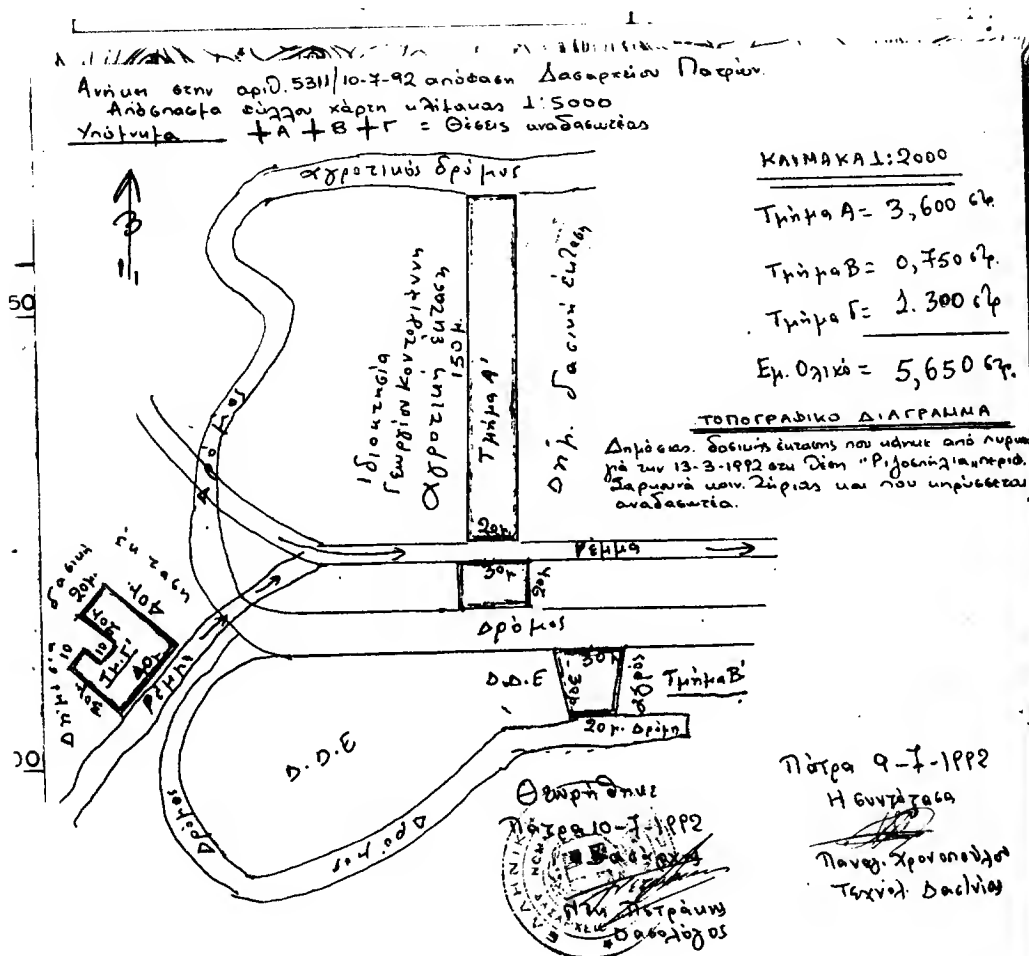 Ανήκει στην αριθ. 5311/10-7-92 απόφαση Δασαρχείου Πατρών.
Απόσπασμα φύλλου χάρτη κλίμακας 1:5000
Υπόμνημα +Α +Β +Γ = Θέσεις αναδασωτέας
ΚΛΙΜΑΚΑ 1:2000
Τμήμα Α = 3,600 στρ.
Τμήμα Β = 0,750 στρ.
Τμήμα Γ = 1.300 στρ
Εμ. Ολικό = 5,650 στρ.
ΤΟΠΟΓΡΑΦΙΚΟ ΔΙΑΓΡΑΜΜΑ
Δημόσιας δασικής έκτασης που κάηκε από πυρκα
γιά την 13-3-1992 στη θέση "Ριζοσπηλιά" περιφ.
κοιν. Ζήριας και που κηρύσσεται
αναδασωτέα.
αγροτικός δρόμος
Β
50
ιδιοκτησία
Γεωργίου Κοντογιάννη
αγροτική έκταση
150μ.
Τμήμα Α'
20μ
Δημ. δασική έκταση
Δρόμος
ρέμμα
30μ
20μ
Δρόμος
Δ.Δ.Ε
30μ
30μ
Τμήμα Β'
20μ. Δρόμ
Δημόσια δασική έκταση
20μ.
40μ.
20μ
10
10
Τμ. Γ'
40μ
30μ
ρέμμα
00
Δ.Δ.Ε
Δρόμος
Δρόμος
Θεωρήθηκε
Πάτρα 10-7-1992
Πετράκης
Δασολόγος
Πάτρα 9-7-1992
Η συντάξασα
Παναγ. Χρονοπούλου
Τεχνολ. Δασ/νίας